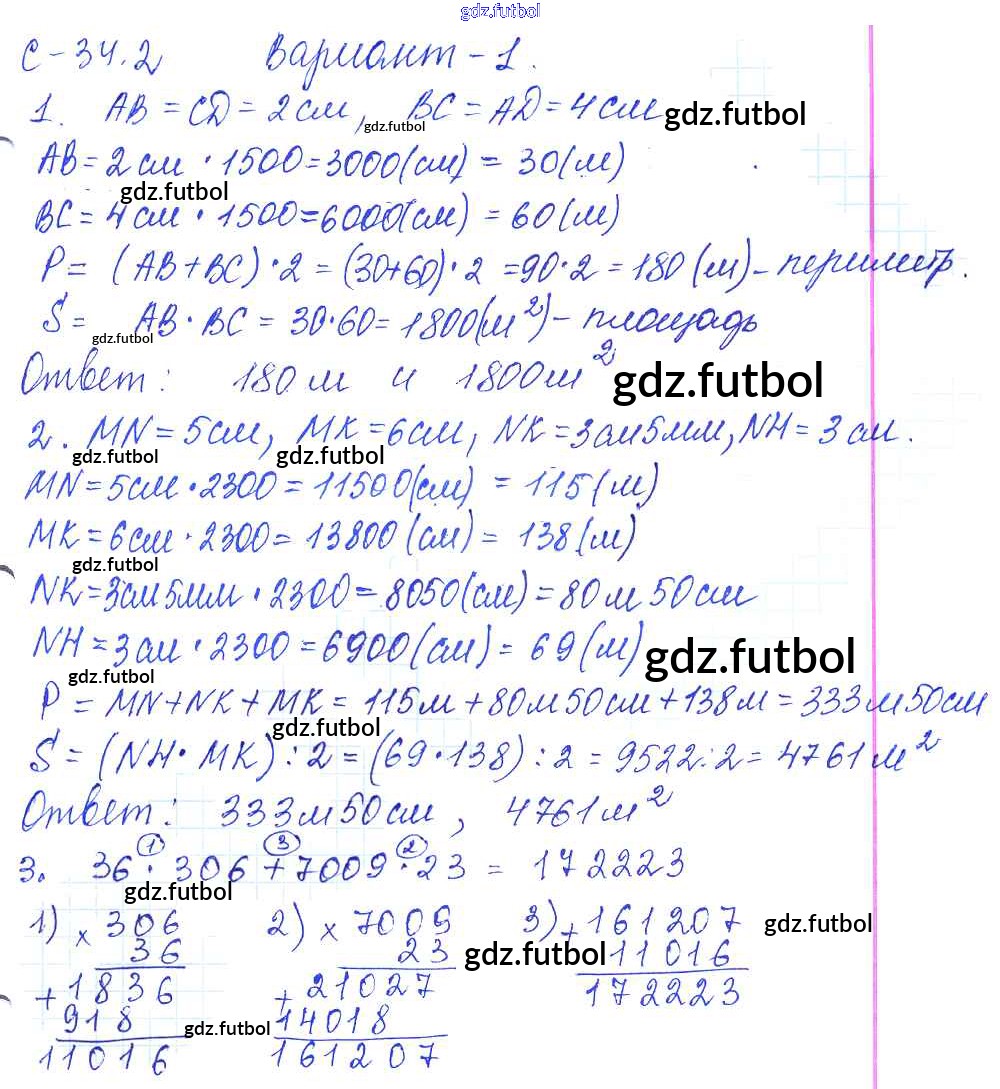 gdz.futbol
С-34.2 Вариант-1.
1. AB = CD = 2 см, BC = AD = 4 см gdz.futbol
gdz.futbol
AB = 2 см · 1500 = 3000(см) = 30(м)
gdz.futbol
BC = 4 см · 1500 = 6000(см) = 60(м)
P = (AB + BC) · 2 = (30+60) · 2 = 90 · 2 = 180 (м) - периметр.
S = AB · BC = 30 · 60 = 1800(м²) - площадь
gdz.futbol
Ответ: 180 м и 1800 м² gdz.futbol
2. MN = 5 см, MK = 6 см, NK = 3 см 5 мм, NH = 3 см.
gdz.futbol gdz.futbol
MN = 5 см · 2300 = 11500(см) = 115(м)
MK = 6 см · 2300 = 13800 (см) = 138(м)
gdz.futbol
NK = 3 см 5 мм · 2300 = 8050(см) = 80 м 50 см
NH = 3 см · 2300 = 6900(см) = 69(м) gdz.futbol
gdz.futbol
P = MN + NK + MK = 115 м + 80 м 50 см + 138 м = 333 м 50 см
gdz.futbol
S = (NH · MK) : 2 = (69 · 138) : 2 = 9522 : 2 = 4761 м²
Ответ: 333 м 50 см, 4761 м²
1 3 2
3. 36 · 306 + 7009 · 23 = 172223
gdz.futbol
1) × 306 2) × 7009 3) + 161207 gdz.futbol
36 23 gdz.futbol 11016
+ 1836 + 21027 172223
918 gdz.futbol 14018
11016 161207